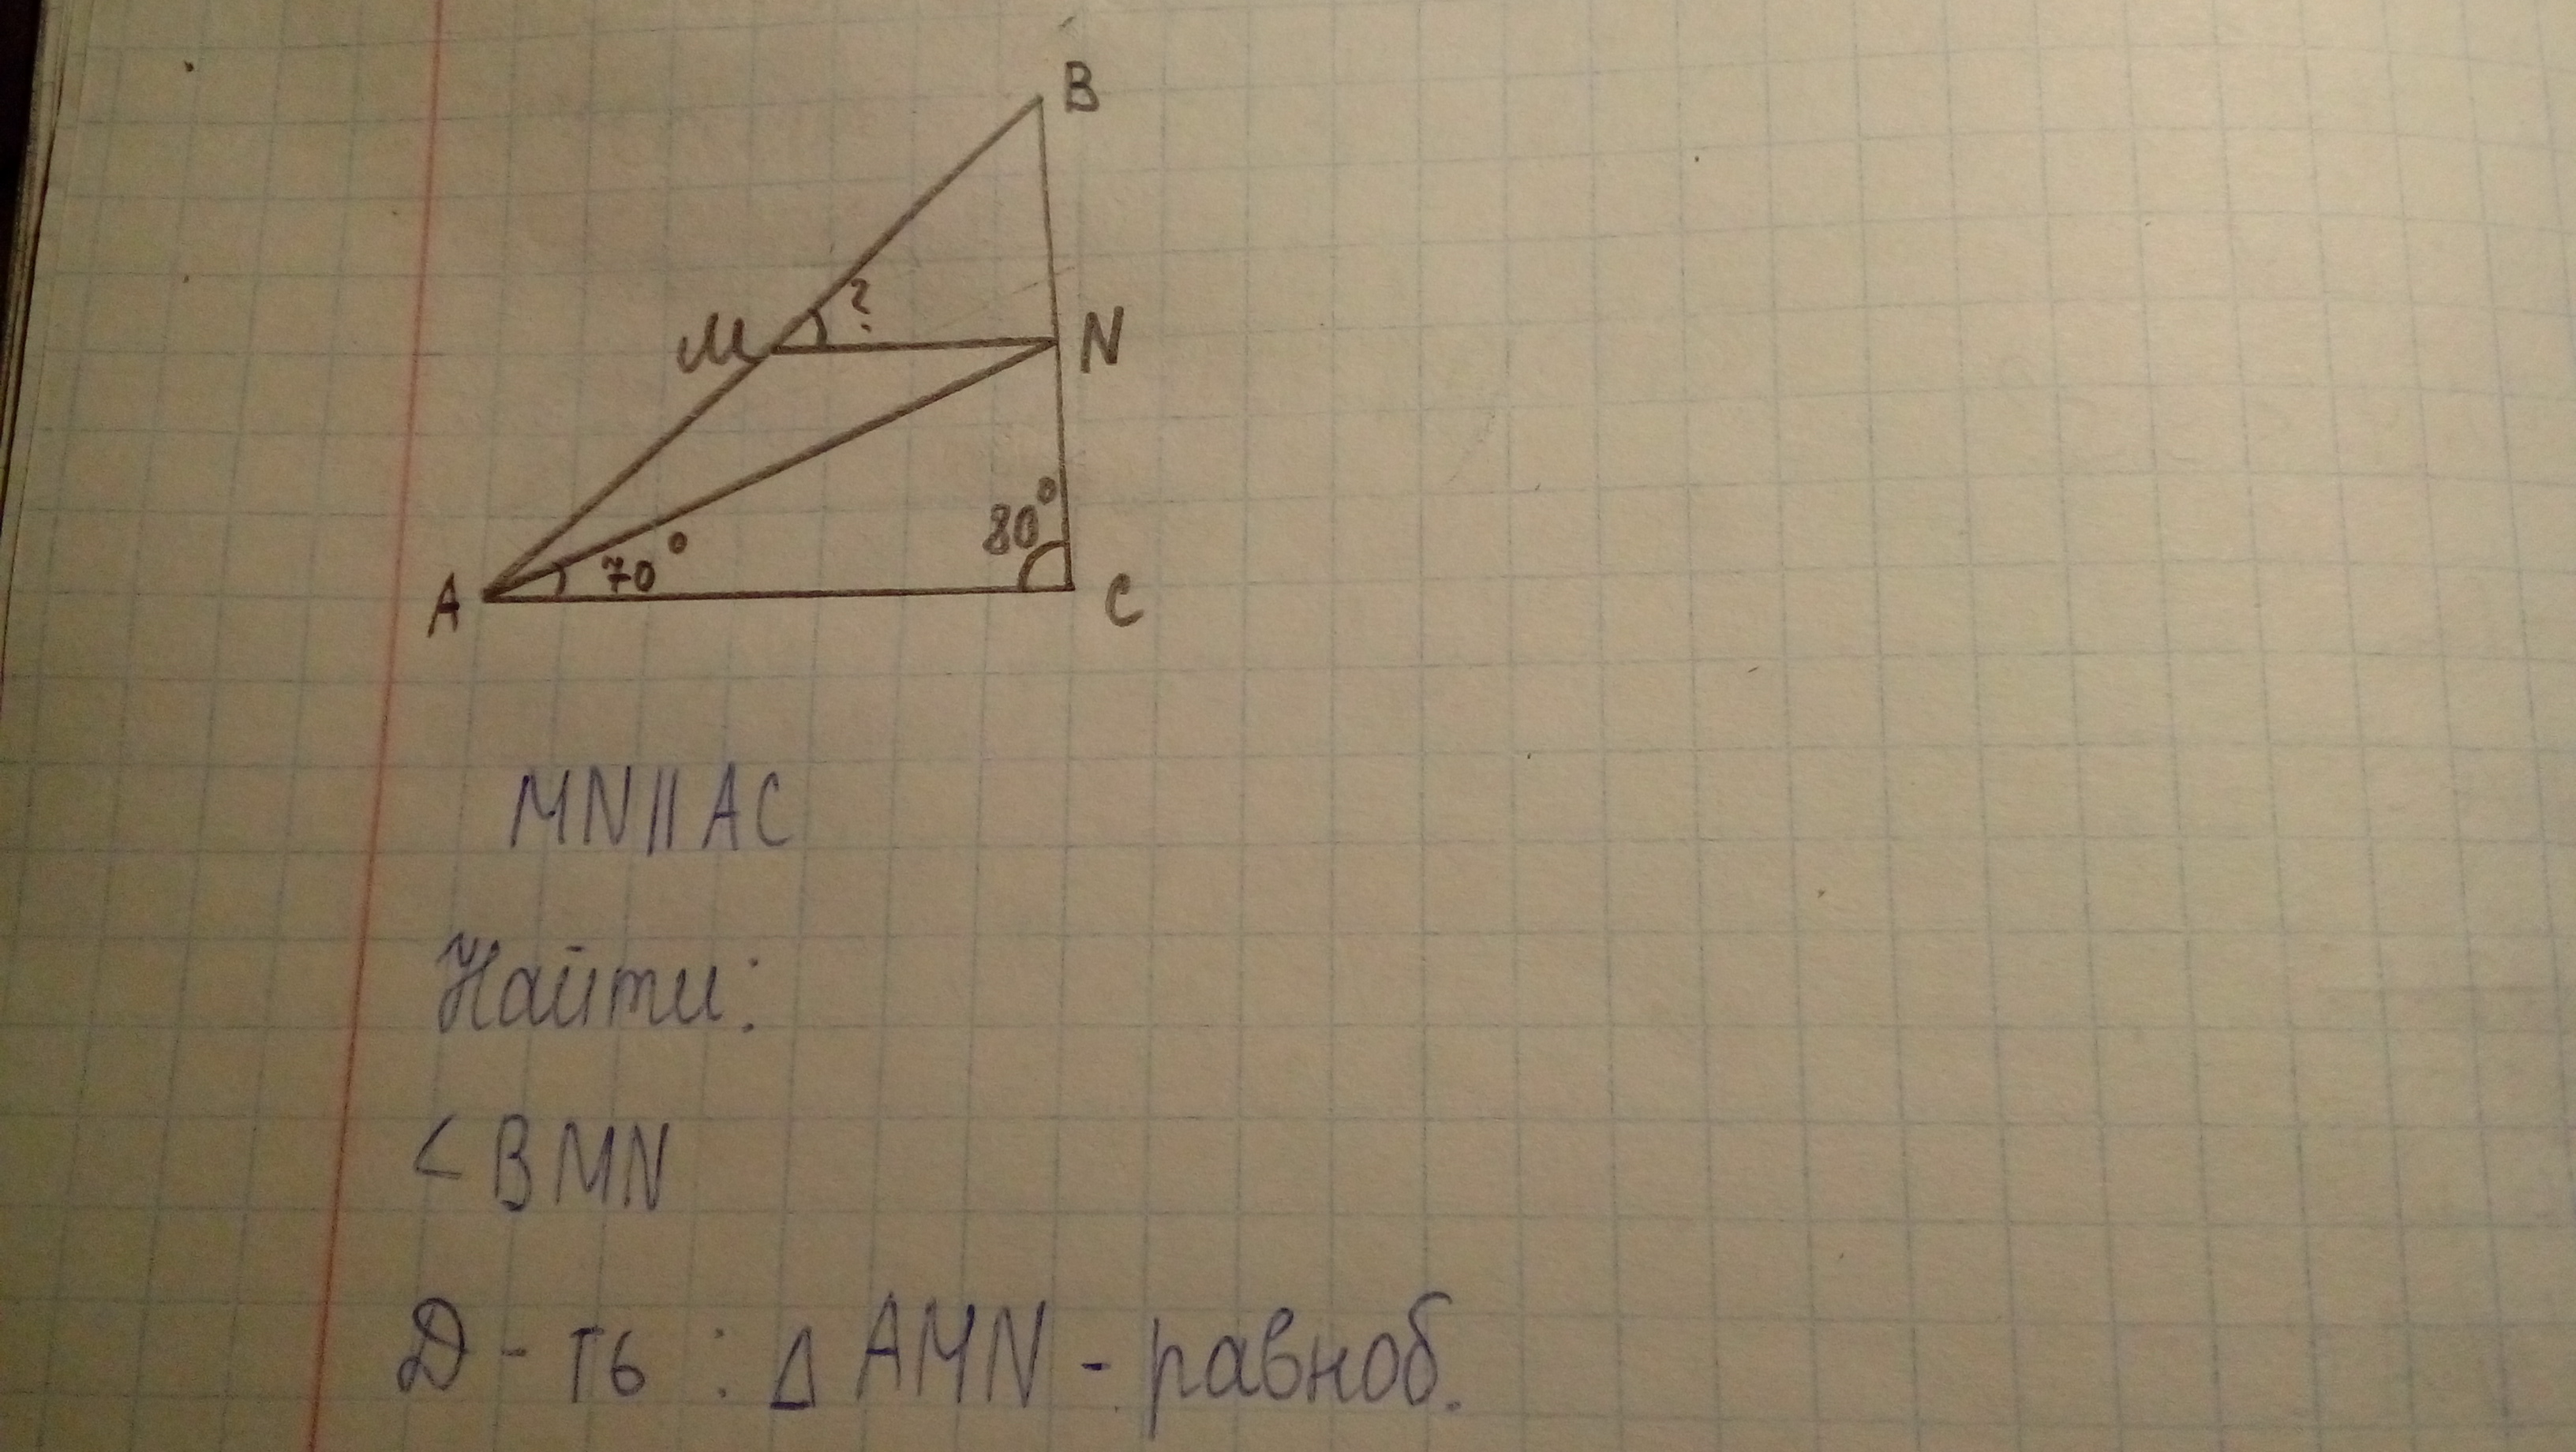 B
?
M
N
80°
70°
A
C
MN||AC
Найти:
< BMN
Д-ть: Δ AMN - равноб.